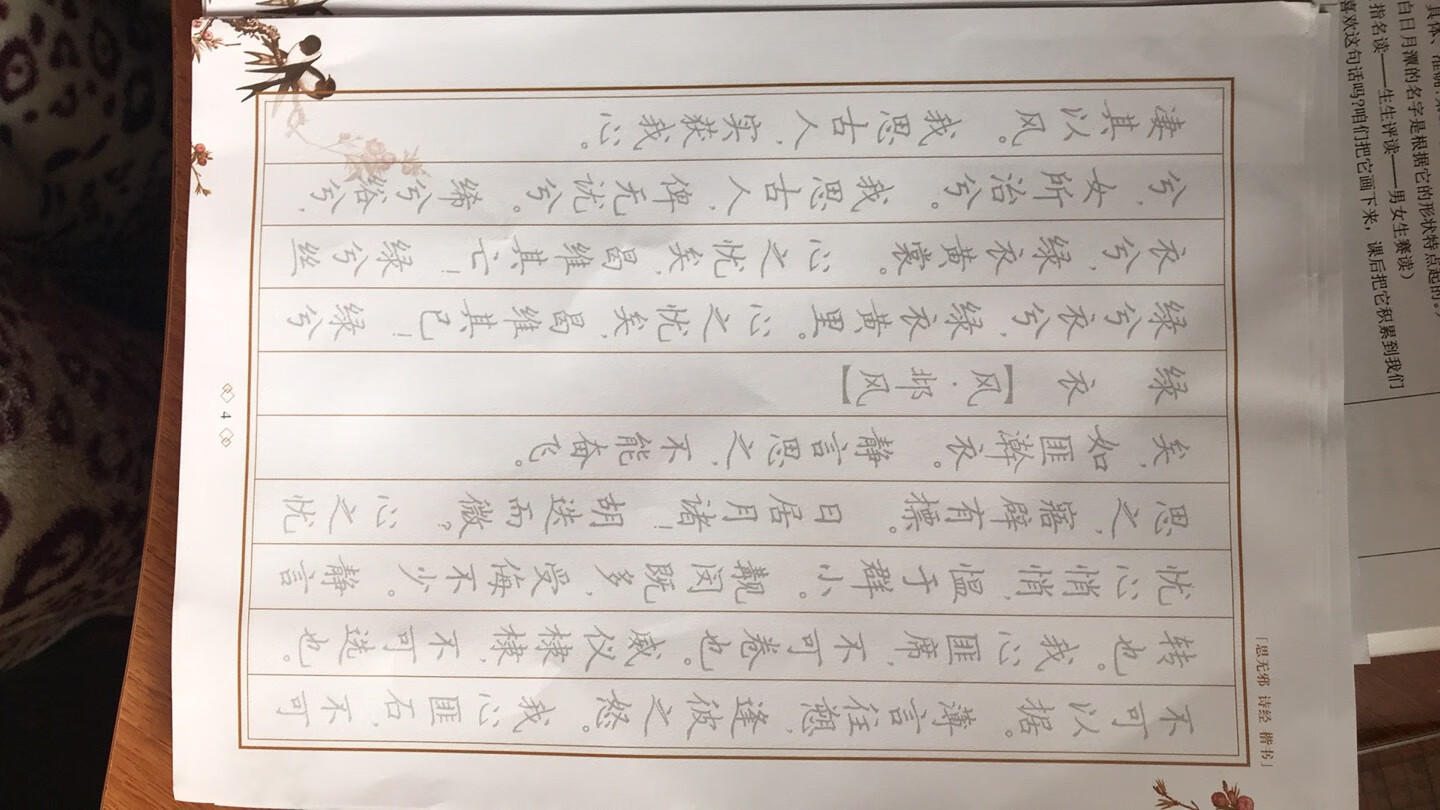 「思无邪 诗经 楷书」
不可以据。薄言往愬,逢彼之怒。我心匪石,不可
转也。我心匪席,不可卷也。威仪棣棣,不可选也。
忧心悄悄,愠于群小。觏闵既多,受侮不少。静言
思之,寤辟有摽。日居月诸!胡迭而微?心之忧
矣,如匪澣衣。静言思之,不能奋飞。
绿衣【风·邶风】
绿兮衣兮,绿衣黄里。心之忧矣,曷维其已!绿兮
衣兮,绿衣黄裳。心之忧矣,曷维其亡!绿兮丝
兮,女所治兮。我思古人,俾无訧兮。絺兮绤兮,
凄其以风。我思古人,实获我心。
4
具体、准确
白日月潭的名字是根据它的形状特点起的。)
指名读——生生评读——男女生赛读)
喜欢这句话吗?咱们把它画下来,课后把它积累到我们